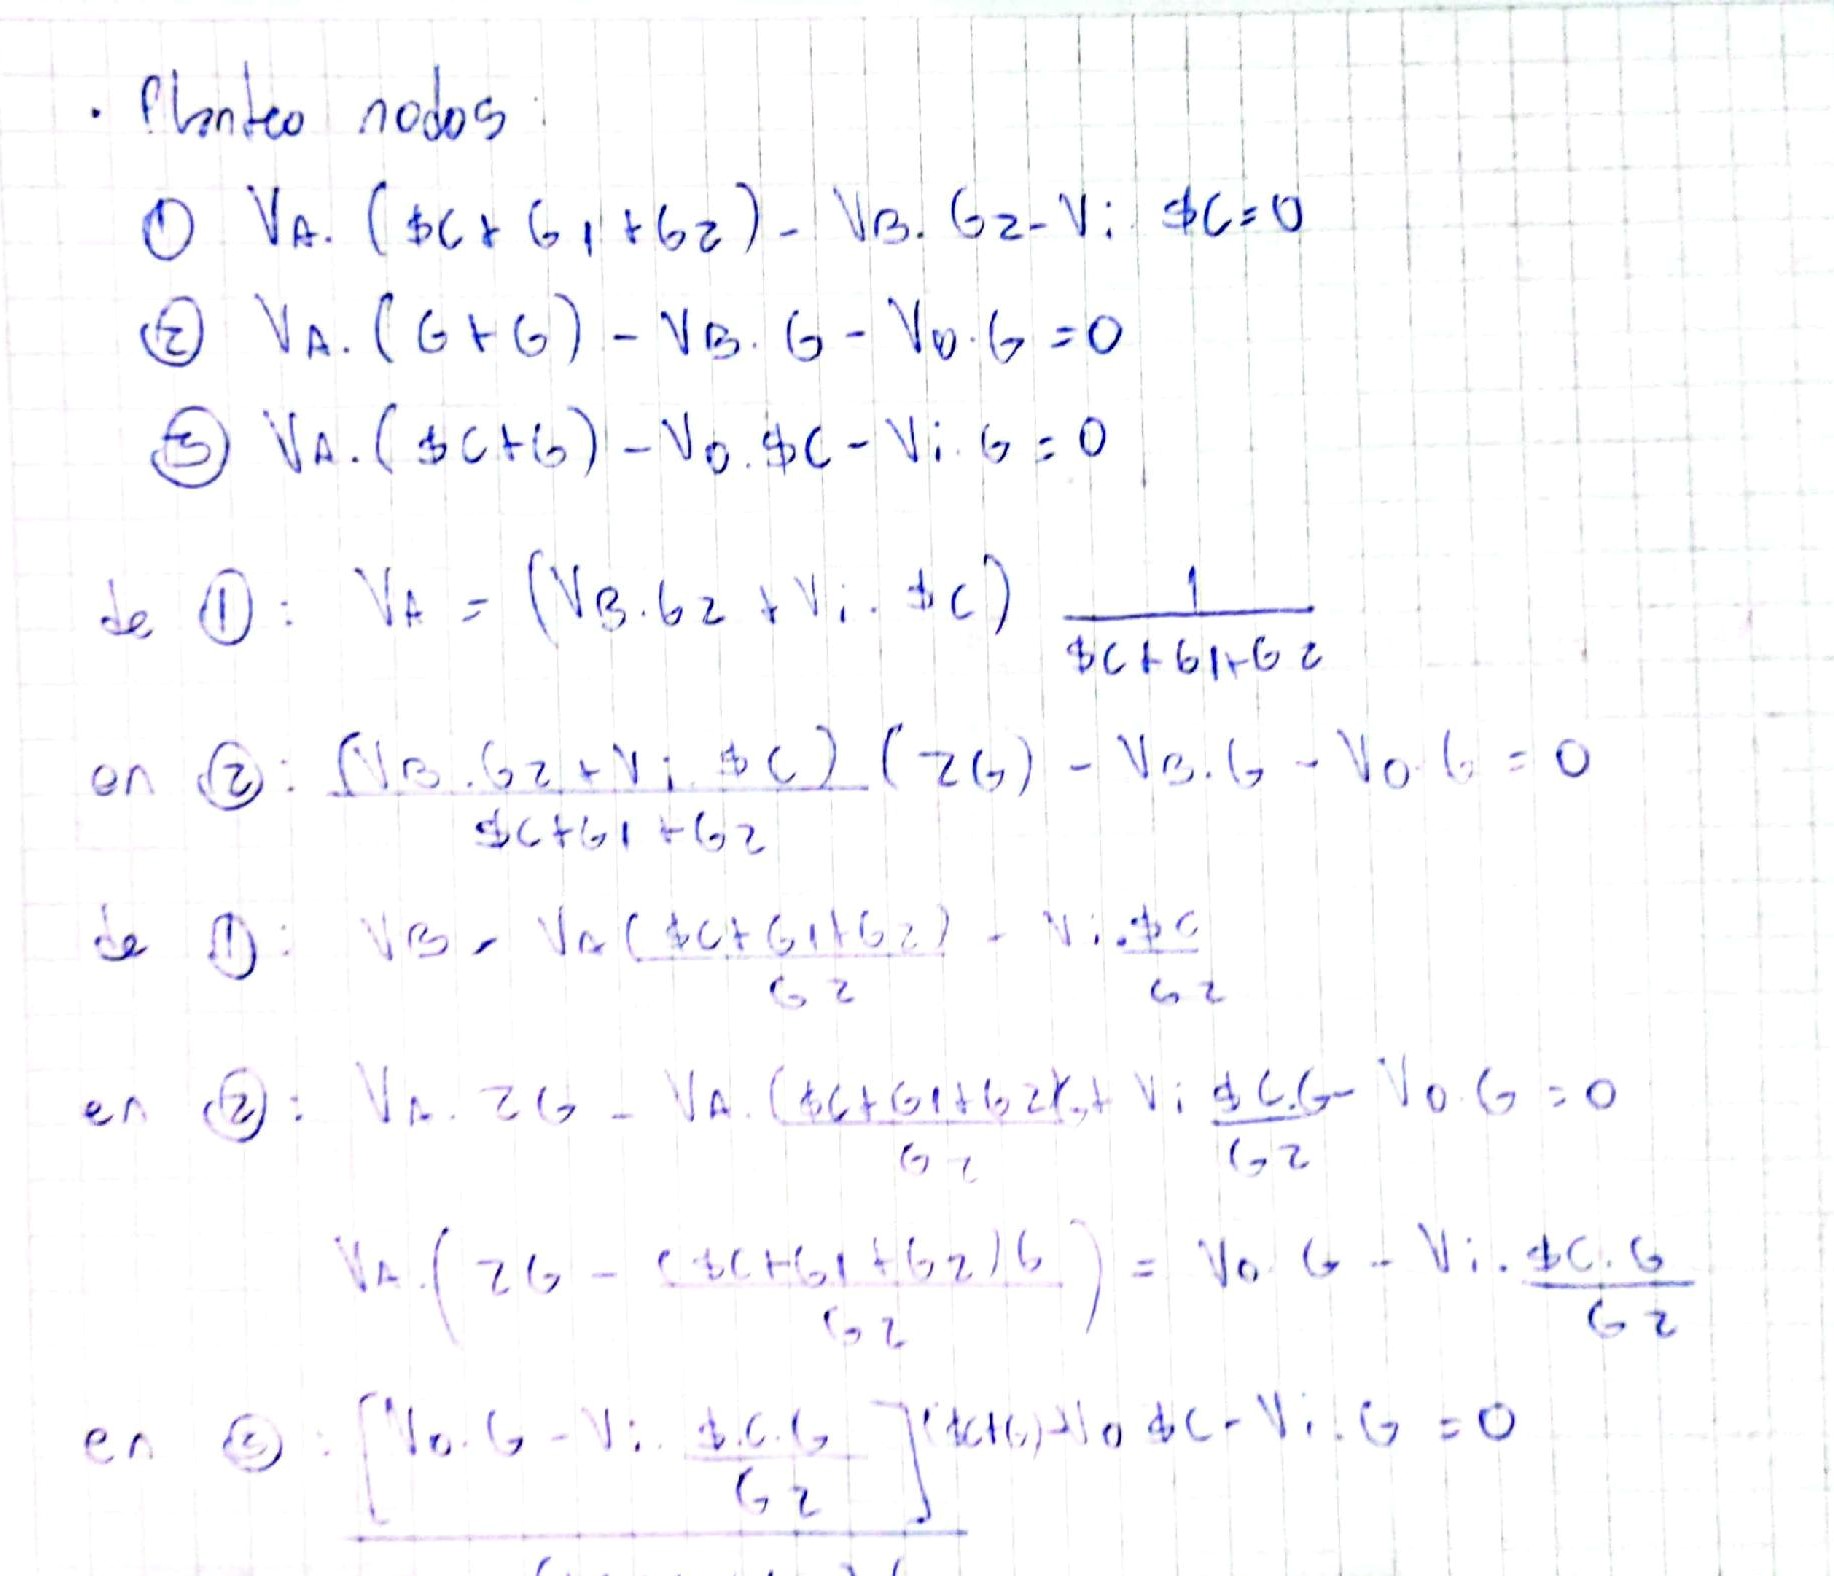 · Planteo nodos:
① VA. ($C + G1 + G2) - VB. G2 - Vi $C = 0
② VA. (G + G) - VB. G - Vo. G = 0
③ VA. ($C + G) - Vo. $C - Vi. G = 0
de ①: VA = (VB. G2 + Vi. $C) 1 / $C + G1 + G2
en ②: (VB. G2 + Vi. $C) / $C + G1 + G2 (2G) - VB. G - Vo. G = 0
de ①: VB = VA ($C + G1 + G2) / G2 - Vi. $C / G2
en ②: VA. 2G - VA. ($C + G1 + G2)G / G2 + Vi $C. G / G2 - Vo. G = 0
VA. (2G - ($C + G1 + G2)G / G2) = Vo. G - Vi. $C. G / G2
en ③: [Vo. G - Vi. $.C. G / G2] ($C+G) - Vo $C - Vi. G = 0